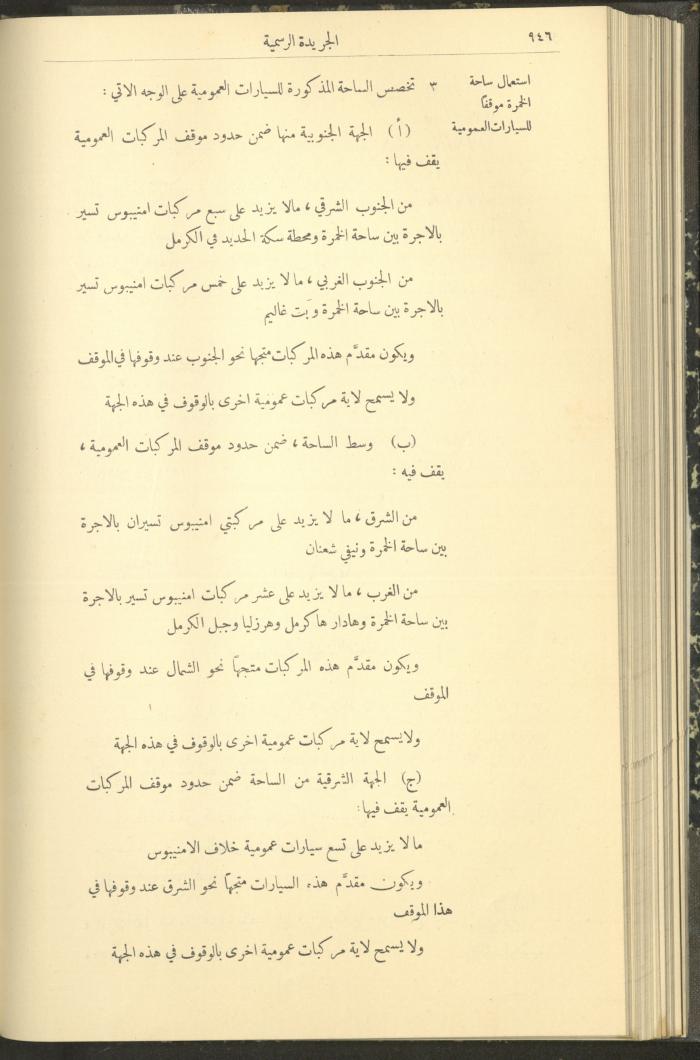 ٩٤٦
الجريدة الرسمية
استعمال ساحة
الخمرة موقفًا
للسيارات العمومية
٣ تخصص الساحة المذكورة للسيارات العمومية على الوجه الاتي :
(أ) الجهة الجنوبية منها ضمن حدود موقف المركبات العمومية
يقف فيها :
من الجنوب الشرقي ، مالا يزيد على سبع مركبات امنيبوس تسير
بالاجرة بين ساحة الخمرة ومحطة سكة الحديد في الكرمل
من الجنوب الغربي ، ما لا يزيد على خمس مركبات امنيبوس تسير
بالاجرة بين ساحة الخمرة وبَت غاليم
ويكون مقدَّم هذه المركبات متجها نحو الجنوب عند وقوفها في الموقف
ولا يسمح لاية مركبات عمومية اخرى بالوقوف في هذه الجهة
(ب) وسط الساحة ، ضمن حدود موقف المركبات العمومية ،
يقف فيه :
من الشرق ، ما لا يزيد على مركبتي امنيبوس تسيران بالاجرة
بين ساحة الخمرة ونيفي شعنان
من الغرب ، ما لا يزيد على عشر مركبات امنيبوس تسير بالاجرة
بين ساحة الخمرة وهادار هاكرمل وهرزليا وجبل الكرمل
ويكون مقدَّم هذه المركبات متجهًا نحو الشمال عند وقوفها في
الموقف
ولايسمح لاية مركبات عمومية اخرى بالوقوف في هذه الجهة
(ج) الجهة الشرقية من الساحة ضمن حدود موقف المركبات
العمومية يقف فيها:
ما لا يزيد على تسع سيارات عمومية خلاف الامنيبوس
ويكون مقدَّم هذه السيارات متجهًا نحو الشرق عند وقوفها في
هذا الموقف
ولا يسمح لاية مركبات عمومية اخرى بالوقوف في هذه الجهة